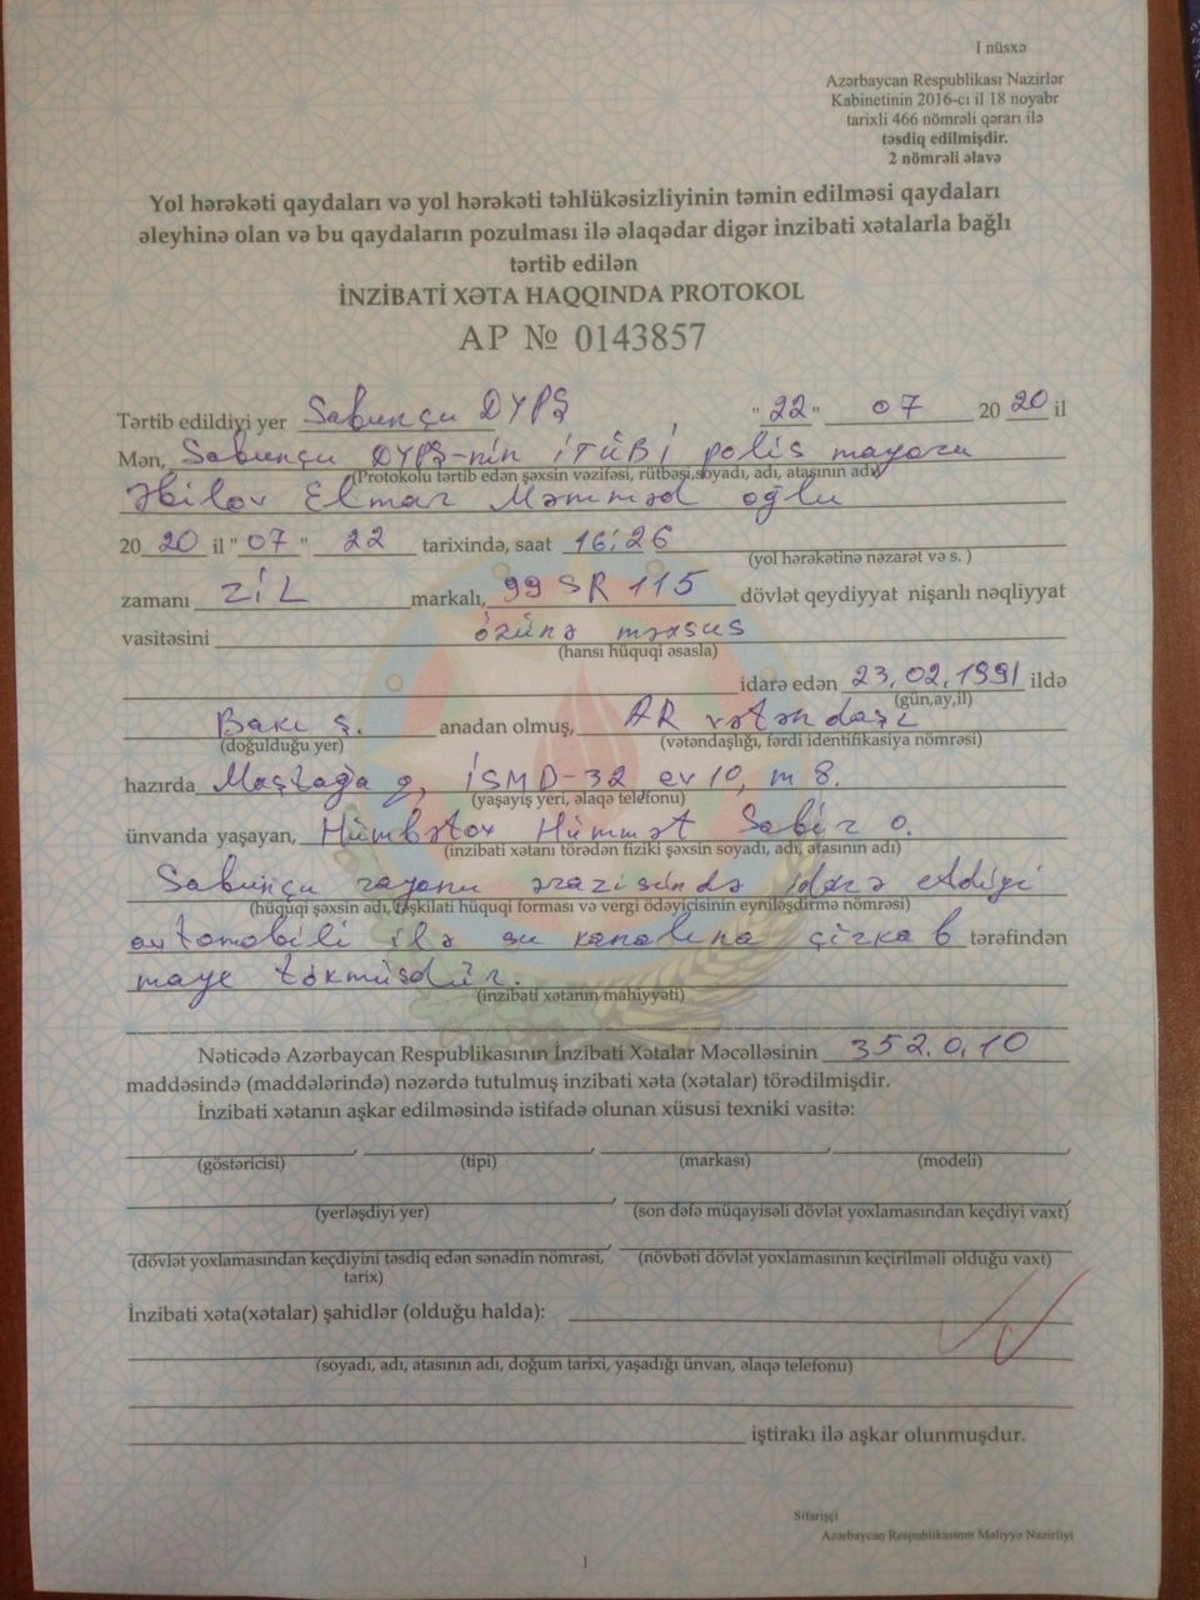 I nüsxə
Azərbaycan Respublikası Nazirlər
Kabinetinin 2016-cı il 18 noyabr
tarixli 466 nömrəli qərarı ilə
təsdiq edilmişdir.
2 nömrəli əlavə
Yol hərəkəti qaydaları və yol hərəkəti təhlükəsizliyinin təmin edilməsi qaydaları
əleyhinə olan və bu qaydaların pozulması ilə əlaqədar digər inzibati xətalarla bağlı
tərtib edilən
İNZİBATİ XƏTA HAQQINDA PROTOKOL
AP № 0143857
Tərtib edildiyi yer Sabunçu DYPŞ "22" 07 2020 il
Mən, Sabunçu DYPŞ-nin İTÜBİ polis mayoru
(Protokolu tərtib edən şəxsin vəzifəsi, rütbəsi,soyadı, adı, atasının adı)
Əbilov Elmar Məmməd oğlu
2020 il "07" 22 tarixində, saat 16:26
(yol hərəkətinə nəzarət və s. )
zamanı ZİL markalı, 99 SR 115 dövlət qeydiyyat nişanlı nəqliyyat
vasitəsini özünə məxsus
(hansı hüquqi əsasla)
idarə edən 23,02,1991 ildə
(gün,ay,il)
Bakı ş. anadan olmuş, AR vətəndaşı
(doğulduğu yer) (vətəndaşlığı, fərdi identifikasiya nömrəsi)
hazırda Maştağa q, İSMD-32 ev 10, m 8.
(yaşayış yeri, əlaqə telefonu)
ünvanda yaşayan, Hümbətov Hümmət Sabir o.
(inzibati xətanı törədən fiziki şəxsin soyadı, adı, atasının adı)
Sabunçu rayonu ərazisində idarə etdiyi
(hüquqi şəxsin adı, təşkilati hüquqi forması və vergi ödəyicisinin eyniləşdirmə nömrəsi)
avtomobili ilə su kanalına çirkab tərəfindən
maye tökmüsdür.
(inzibati xətanın mahiyyəti)
Nəticədə Azərbaycan Respublikasının İnzibati Xətalar Məcəlləsinin 352.0.10
maddəsində (maddələrində) nəzərdə tutulmuş inzibati xəta (xətalar) törədilmişdir.
İnzibati xətanın aşkar edilməsində istifadə olunan xüsusi texniki vasitə:
(göstəricisi) (tipi) (markası) (modeli)
(yerləşdiyi yer) (son dəfə müqayisəli dövlət yoxlamasından keçdiyi vaxt)
(dövlət yoxlamasından keçdiyini təsdiq edən sənədin nömrəsi, (növbəti dövlət yoxlamasının keçirilməli olduğu vaxt)
tarix)
İnzibati xəta(xətalar) şahidlər (olduğu halda):
(soyadı, adı, atasının adı, doğum tarixi, yaşadığı ünvan, əlaqə telefonu)
iştirakı ilə aşkar olunmuşdur.
Sifarişçi
Azərbaycan Respublikasının Maliyyə Nazirliyi
1